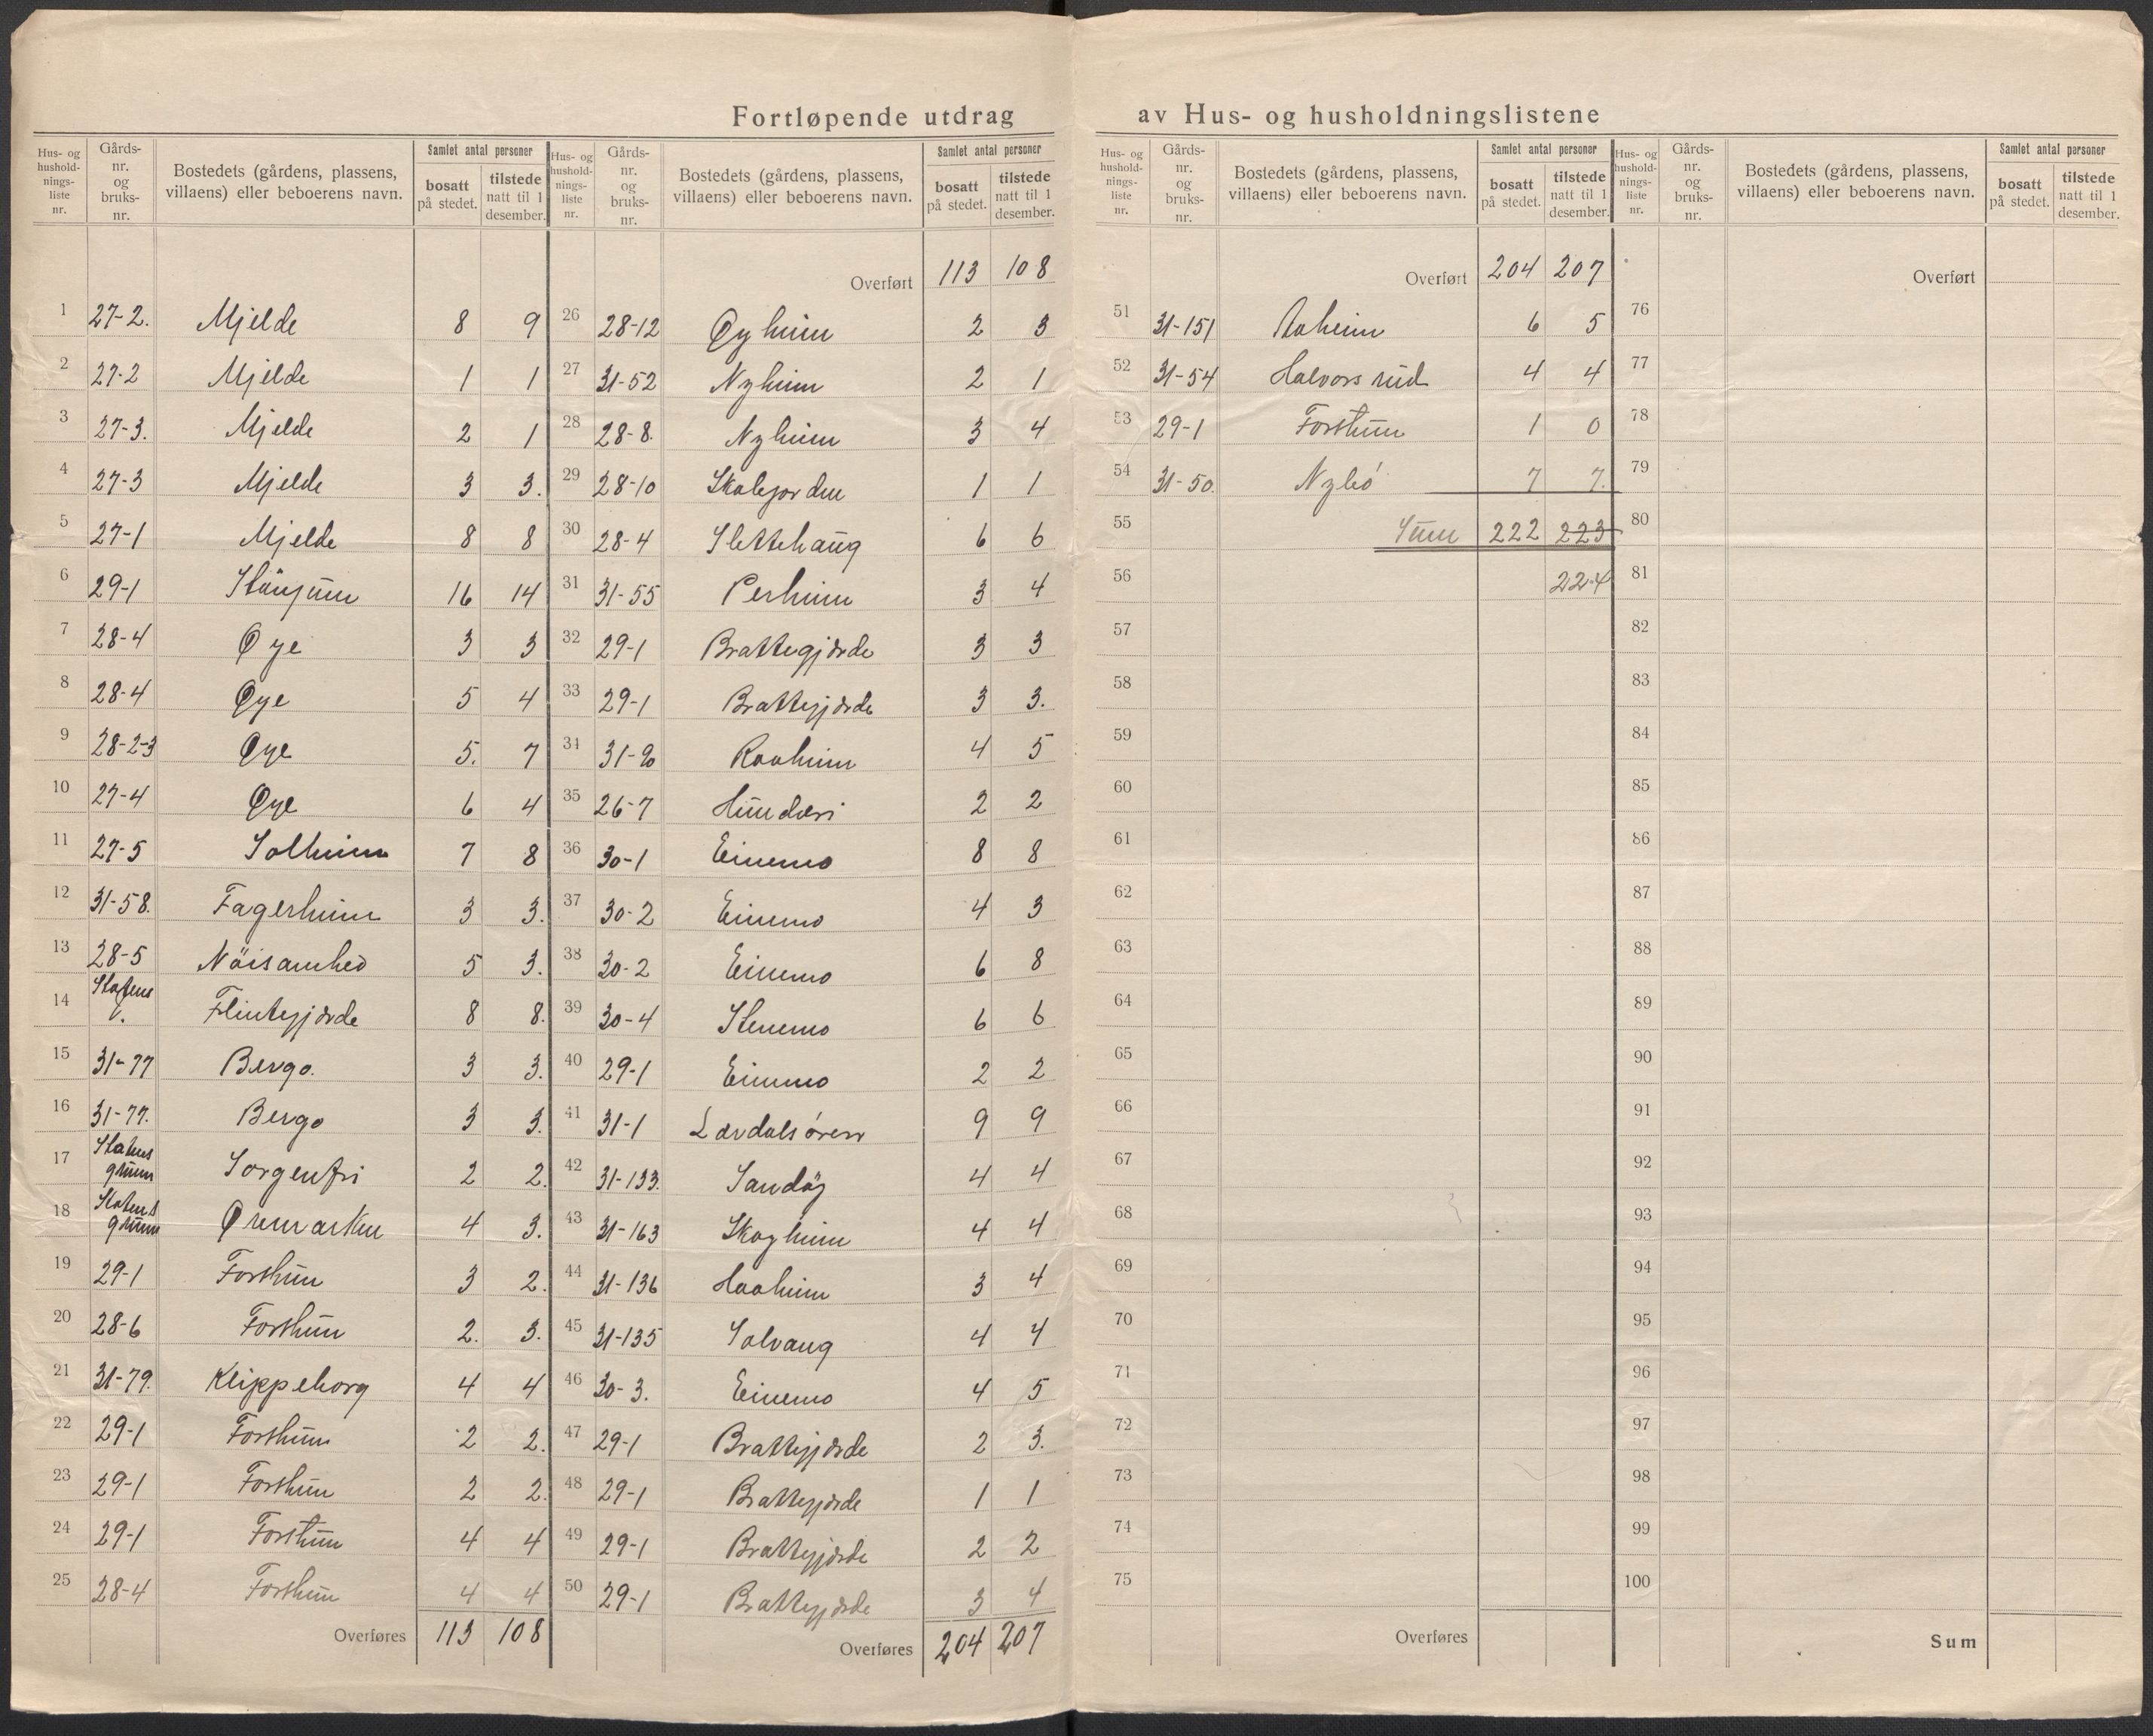 Fortløpende utdrag av Hus- og husholdningslistene
Hus- og hushold-nings-liste nr. | Gårds-nr. og bruks-nr. | Bostedets (gårdens, plassens, villaens) eller beboerens navn. | Samlet antal personer | bosatt på stedet. | tilstede natt til 1 desember.
1 27-2. Mjelde 8 9
2 27-2 Mjelde 1 1
3 27-3. Mjelde 2 1
4 27-3 Mjelde 3 3.
5 27-1 Mjelde 8 8
6 29-1 16 14
7 28-4 Øye 3 3
8 28-4 Øye 5 4
9 28-2-3 Øye 5. 7
10 27-4 Øye 6 4
11 27-5 Solheim 7 8
12 31-58. Fagerheim 3 3.
13 28-5 Nöisamhed 5 3.
14 Statens Flintegjærde 8 8.
15 31-77 Bergo. 3 3.
16 31-77. Bergo 3 3.
17 Statens grunn Sorgenfri 2 2.
18 Statens grunn Øremarken 4 3.
19 29-1 Forthun 3 2.
20 28-6 Forthun 2. 3.
21 31-79. Klippeborg 4 4
22 29-1 Forthun 2 2.
23 29-1 Forthun 2 2.
24 29-1 Forthun 4 4
25 28-4 Forthun 4 4
Overføres 113 108
Hus- og hushold-nings-liste nr. | Gårds-nr. og bruks-nr. | Bostedets (gårdens, plassens, villaens) eller beboerens navn. | Samlet antal personer | bosatt på stedet. | tilstede natt til 1 desember.
Overført 113 108
26 28-12 Øyheim 2 3
27 31-52 Nyheim 2 1
28 28-8. Nyheim 3 4
29 28-10 Skolejorden 1 1
30 28-4 Slettehaug 6 6
31 31-55 Perheim 3 4
32 29-1 Brattegjærde 3 3
33 29-1 Brattegjærde 3 3.
34 Raaheim 4 5
35 26-7 Hunderi 2 2
36 30-1 Einemo 8 8
37 30-2 Einemo 4 3
38 30-2 Einemo 6 8
39 30-4 Stenemo 6 6
40 29-1 Einemo 2 2
41 31-1 Lærdalsøren 9 9
42 31-133. Sandöy 4 4
43 31-163 Skogheim 4 4
44 31-136 Haaheim 3 4
45 31-135 Solvang 4 4
46 30-3. Einemo 4 5
47 29-1 Brattegjærde 2 3.
48 29-1 Brattegjærde 1 1
49 29-1 Brattegjærde 2 2
50 29-1 Brattegjærde 3 4
Overføres 204 207
Hus- og hushold-nings-liste nr. | Gårds-nr. og bruks-nr. | Bostedets (gårdens, plassens, villaens) eller beboerens navn. | Samlet antal personer | bosatt på stedet. | tilstede natt til 1 desember.
Overført 204 207
51 31-151 Aaheim 6 5
52 31-54 Halvorsrud 4 4
53 29-1 Forthun 1 0
54 31-50. Nybö 7 7.
55 Sum 222 223
56 224
57
58
59
60
61
62
63
64
65
66
67
68
69
70
71
72
73
74
75
Overføres
Hus- og hushold-nings-liste nr. | Gårds-nr. og bruks-nr. | Bostedets (gårdens, plassens, villaens) eller beboerens navn. | Samlet antal personer | bosatt på stedet. | tilstede natt til 1 desember.
Overført
76
77
78
79
80
81
82
83
84
85
86
87
88
89
90
91
92
93
94
95
96
97
98
99
100
Sum